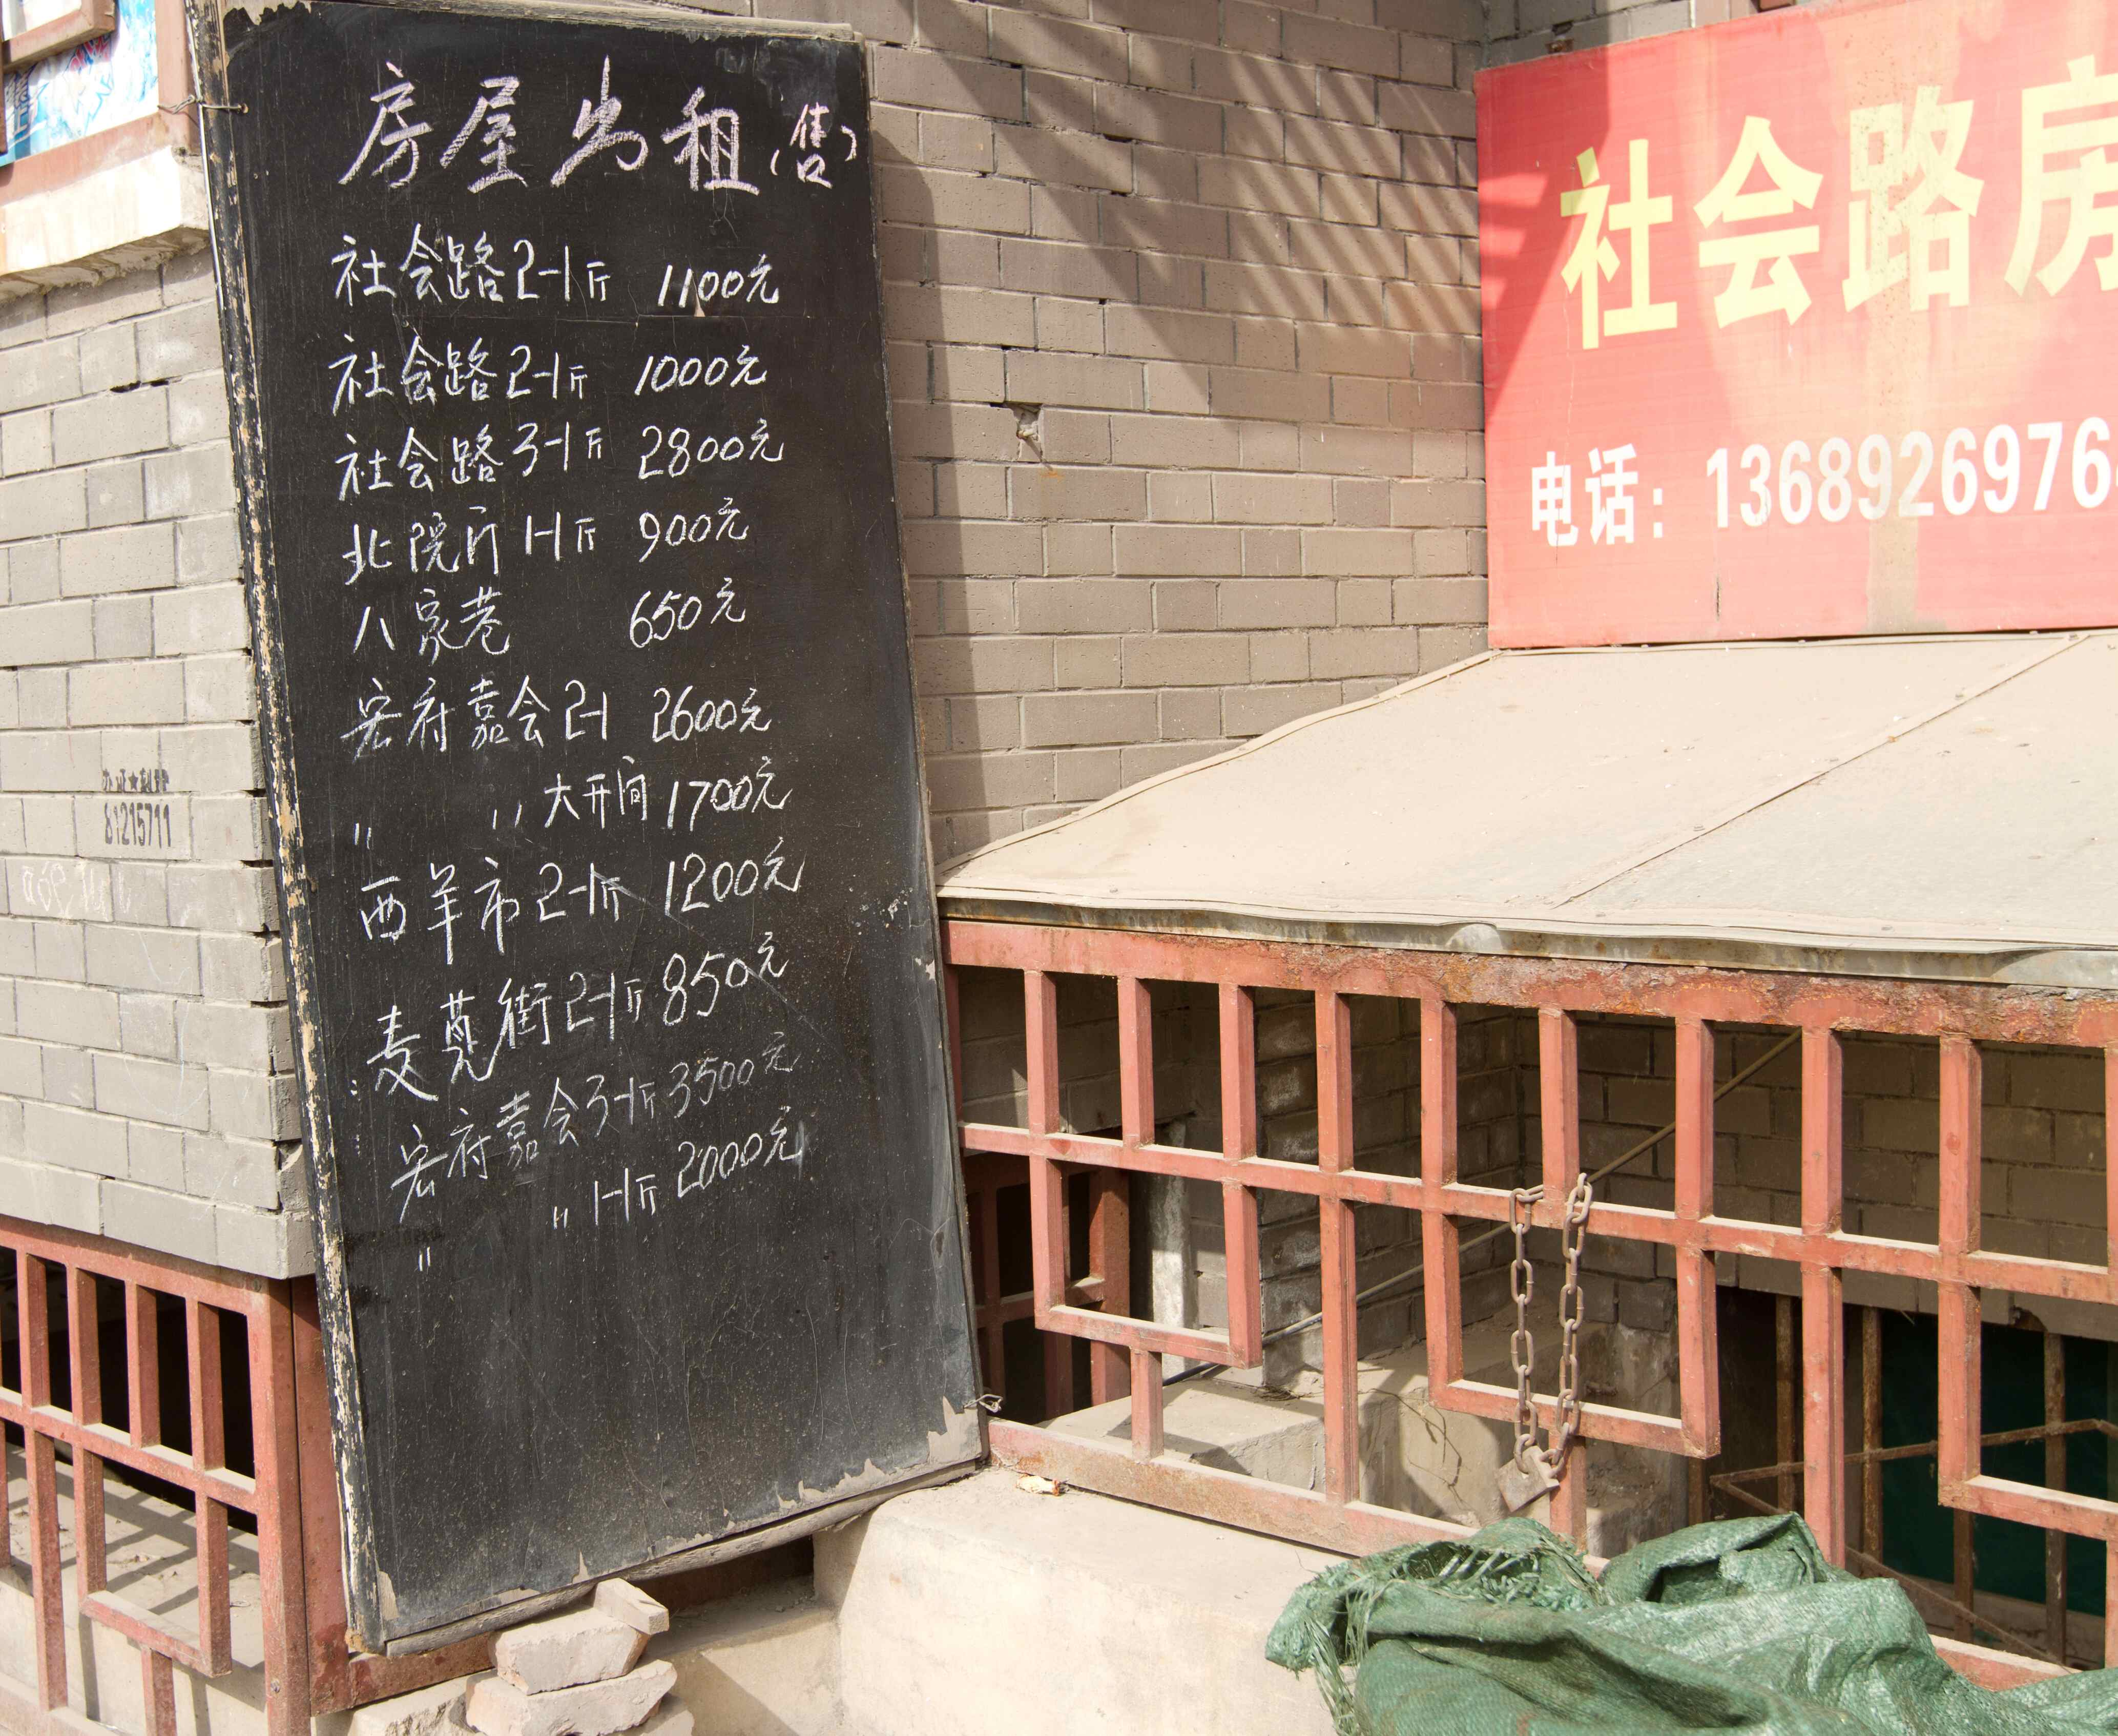 房屋出租(售)
社会路2-1厅 1100元
社会路2-1厅 1000元
社会路3-1厅 2800元
北院门 1-1厅 900元
八家巷 650元
宏府嘉会2-1 2600元
〃 〃大开间 1700元
西羊市2-1厅 1200元
麦苋街2-1厅 850元
宏府嘉会3-1厅 3500元
〃 〃 1-1厅 2000元
社会路房
电话：1368926976
81215711